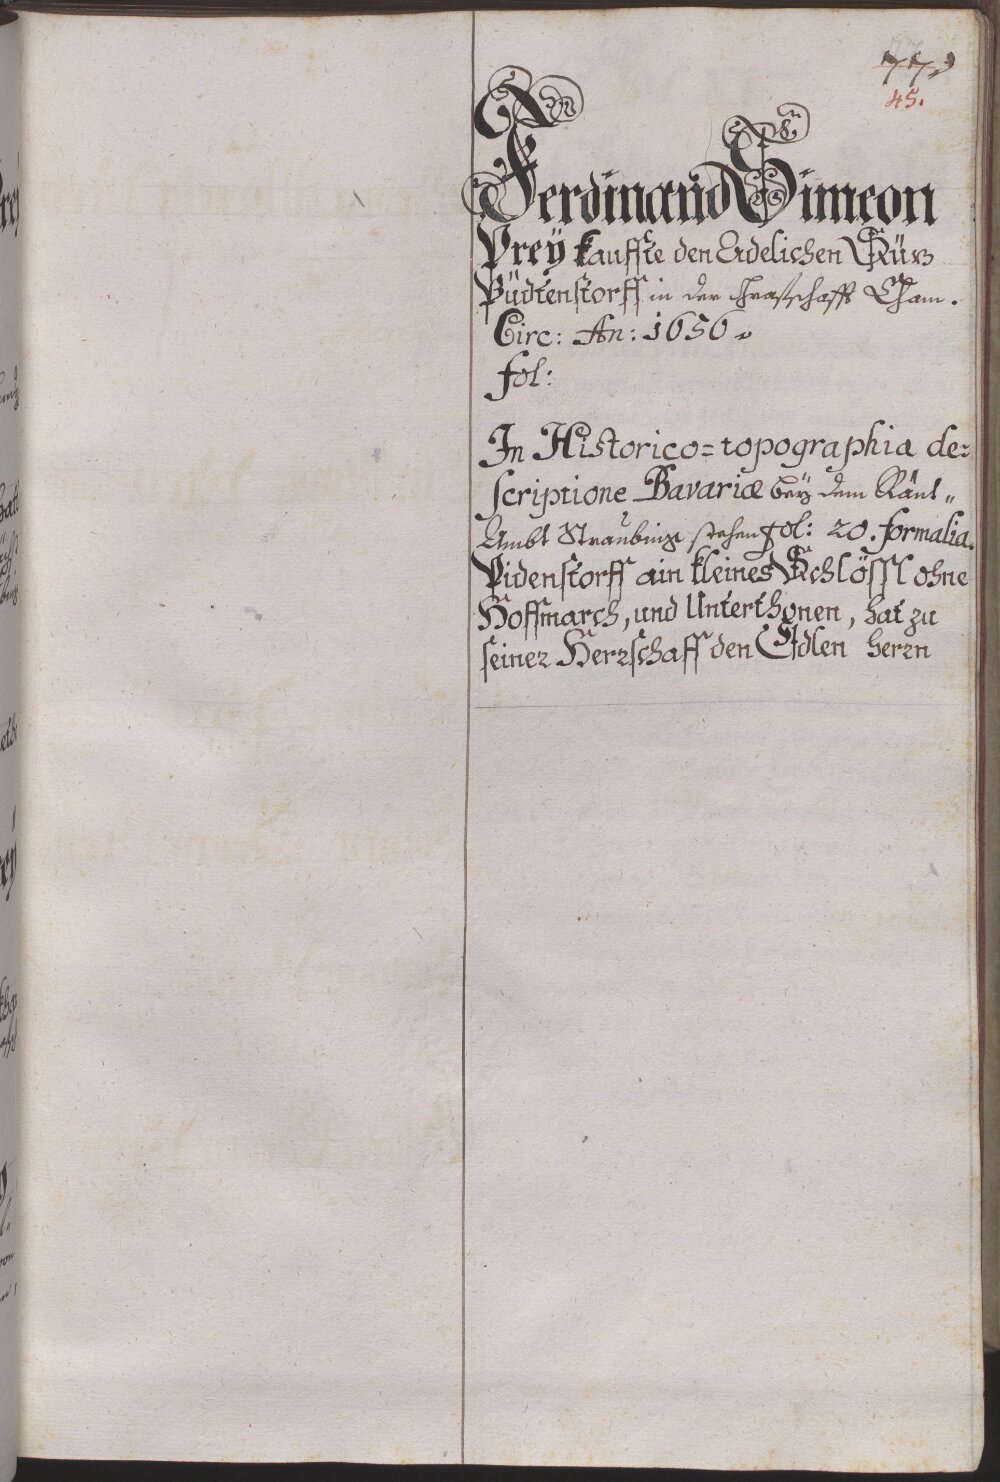 77.
45.
Ferdinand Simeon
Prey kauffte den Adelichen Siz
Püdtenstorff in der Graffschafft Cham.
Circ: An: 1656.
fol:
In Historico=topographia de=
scriptione Bavariæ bey dem Ränt"
Ambt Straubing stehen fol: 20. formalia.
Pidenstorff ain kleines Schlössl ohne
Hoffmarch, und Unterthonen, hat zu
seiner Herrschafft den Edlen herrn